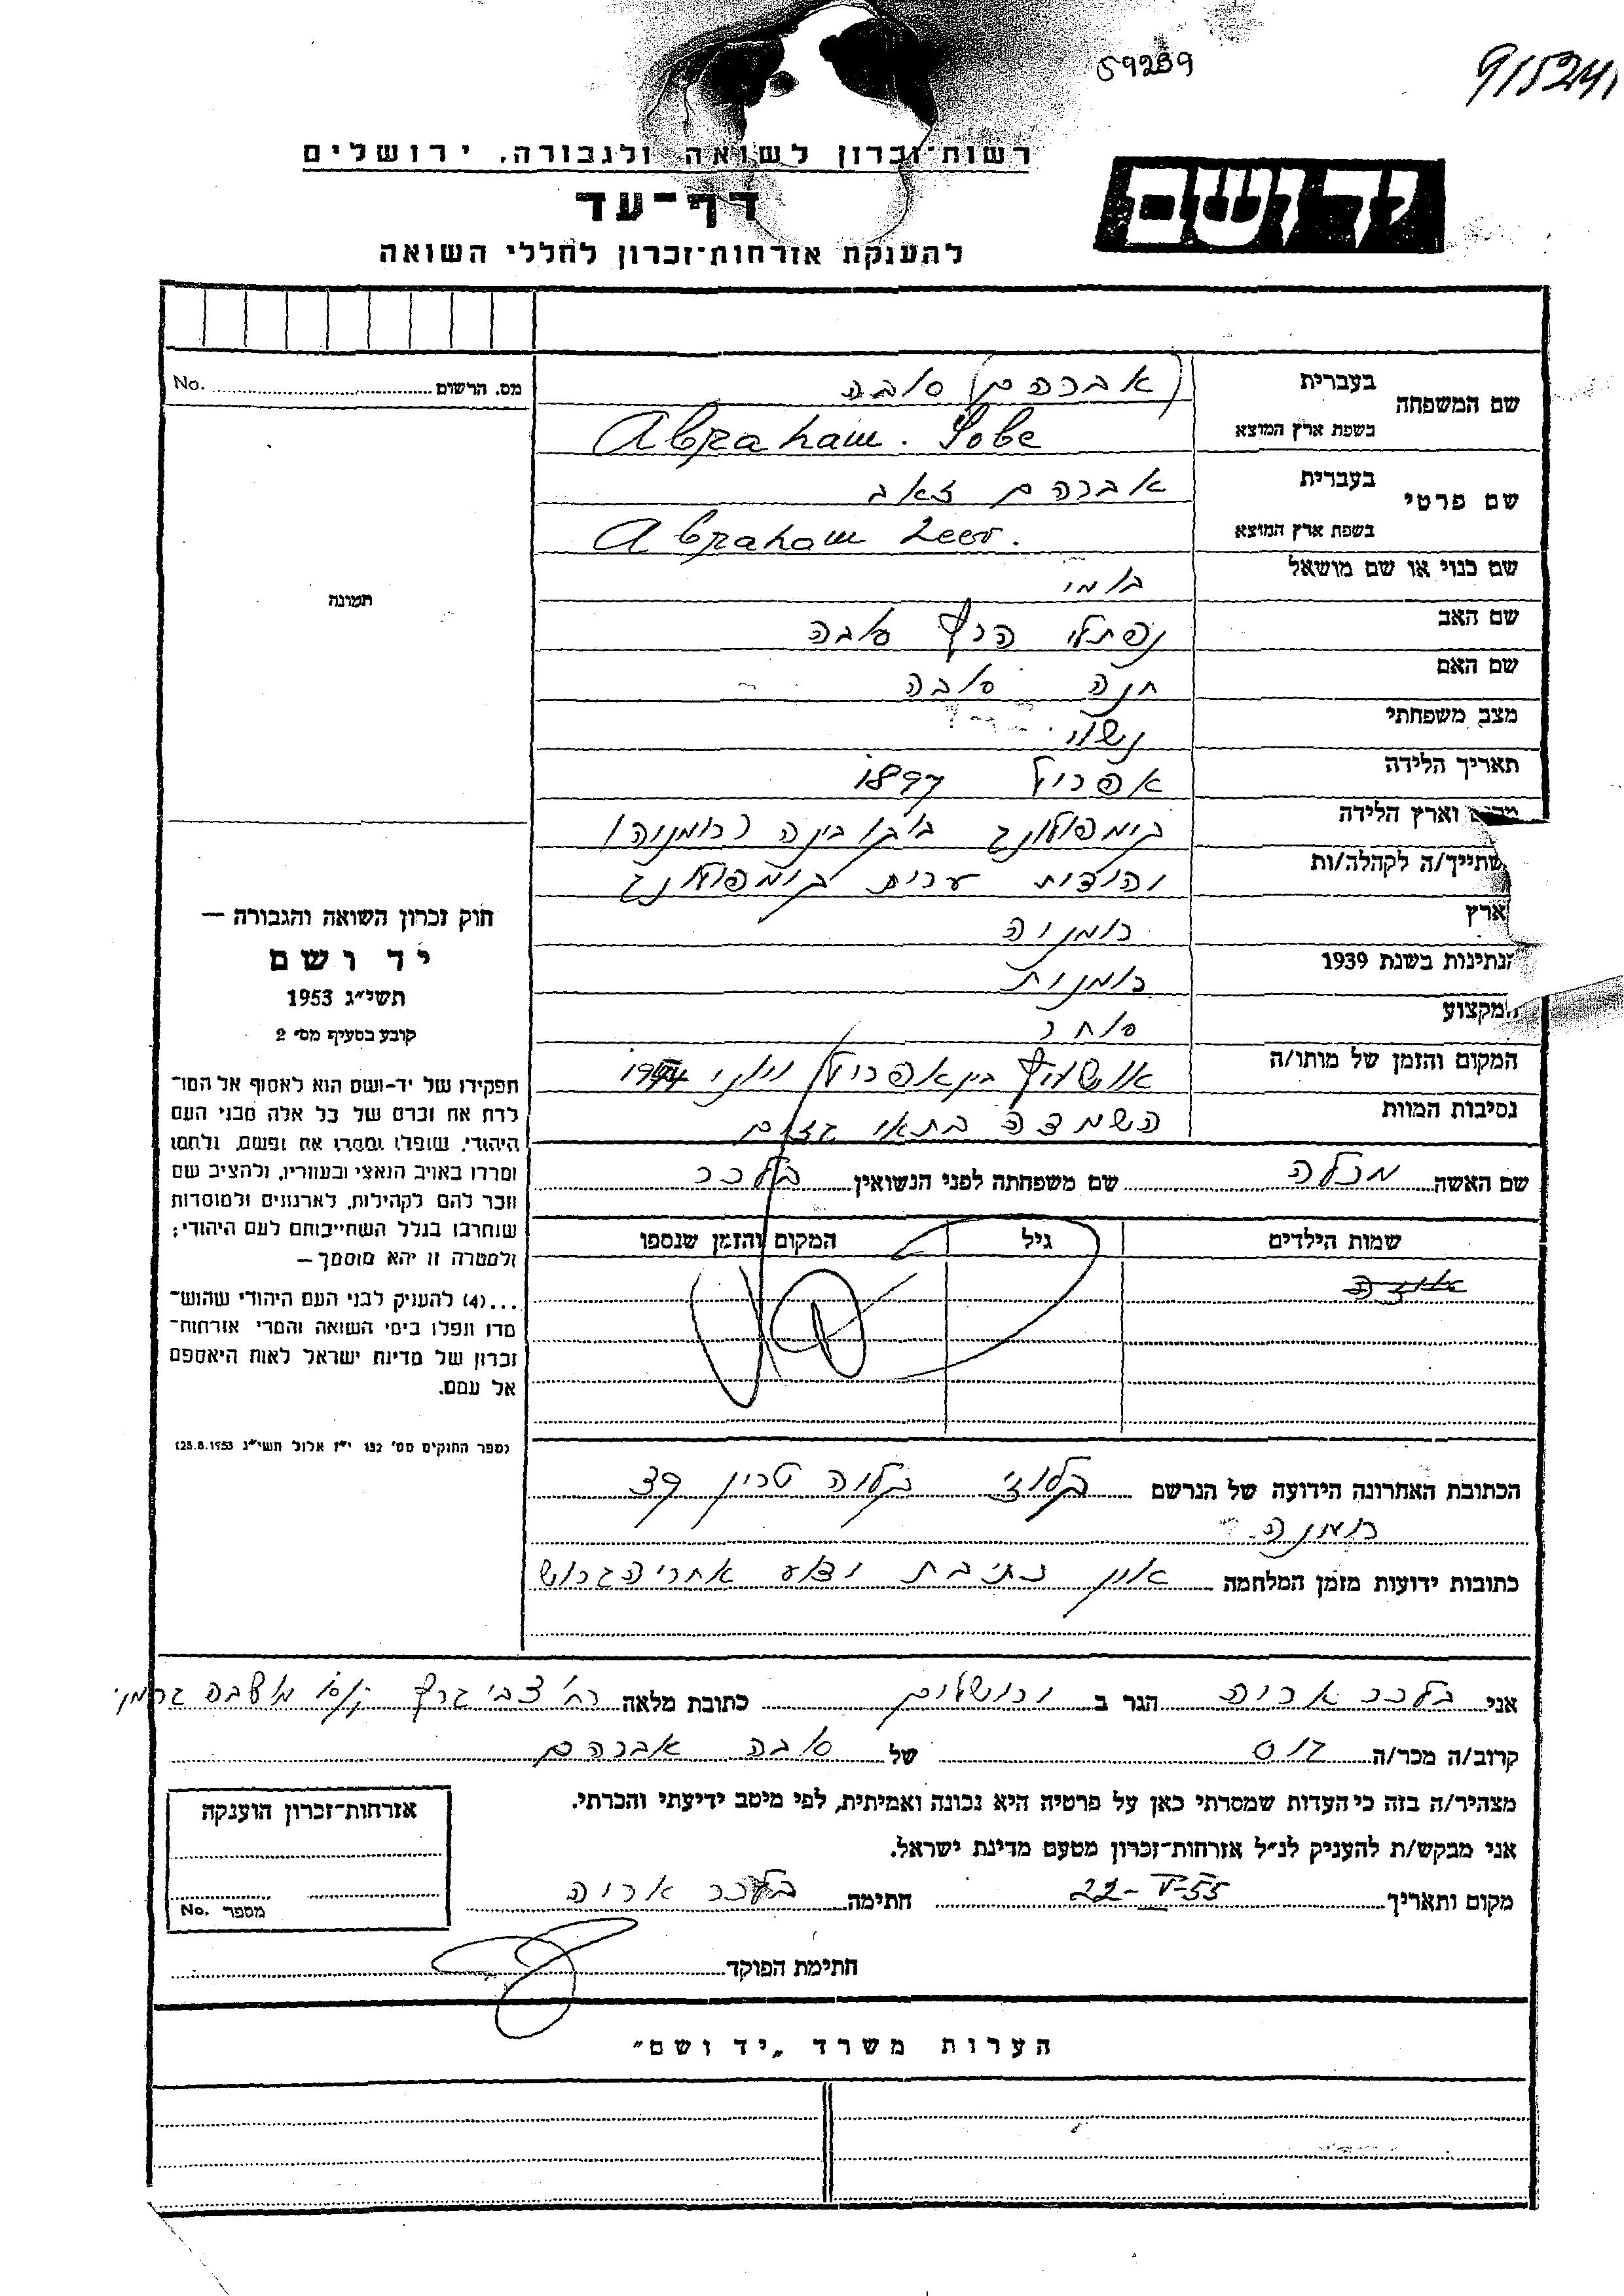 59239
91524
רשות־זכרון לשואה ולגבורה, ירושלים
יד ושם
דף־עד
להענקת אזרחות־זכרון לחללי השואה
מס. הרשום No.
תמונה
שם המשפחה בעברית (אברהם) סובה
בשפת ארץ המוצא Abraham. Sobe
שם פרטי בעברית אברהם זאב
בשפת ארץ המוצא Abraham Zeev.
שם כנוי או שם מושאל
שם האב נפתלי הרץ סובה
שם האם חנה סובה
מצב משפחתי נשוי
תאריך הלידה אפריל 1897
וארץ הלידה קימפולונג בוקובינה (רומניה)
שתייך/ה לקהלה/ות יהודית ערית קימפולונג
ארץ רומניה
הנתינות בשנת 1939 רומנית
המקצוע סוחר
המקום והזמן של מותו/ה אושויץ בין אפריל ויוני 1944
נסיבות המוות השמדה בתאי גזים
שם האשה מכלה שם משפחתה לפני הנשואין
שמות הילדים גיל המקום והזמן שנספו
חוק זכרון השואה והגבורה —
יד ושם
תשי״ג 1953
קובע בסעיף מס׳ 2
תפקידו של יד־ושם הוא לאסוף אל המו־
לדת את זכרם של כל אלה מבני העם
היהודי, שנפלו ומסרו את נפשם, נלחמו
ומרדו באויב הנאצי ובעוזריו, ולהציב שם
וזכר להם לקהילות, לארגונים ולמוסדות
שנחרבו בגלל השתייכותם לעם היהודי;
ולמטרה זו יהא מוסמך —
...(4) להעניק לבני העם היהודי שהוש־
מדו ונפלו בימי השואה והמרי אזרחות־
זכרון של מדינת ישראל לאות היאספם
אל עמם.
(ספר החוקים מס׳ 132 י״ז אלול תשי״ג 28.8.1953)
הכתובת האחרונה הידועה של הנרשם
רומניה.
כתובות ידועות מזמן המלחמה
אני אריה הגר ב ירושלים כתובת מלאה
קרוב/ה מכר/ה גיס של סובה אברהם
מצהיר/ה בזה כי העדות שמסרתי כאן על פרטיה היא נכונה ואמיתית, לפי מיטב ידיעתי והכרתי.
אני מבקש/ת להעניק לנ״ל אזרחות־זכרון מטעם מדינת ישראל.
מקום ותאריך 22-V-55 חתימה אריה
אזרחות־זכרון הוענקה
מספר No.
חתימת הפוקד
הערות משרד „יד ושם״